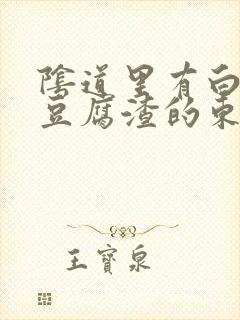 陰道里有白
豆腐渣的東
王寶泉